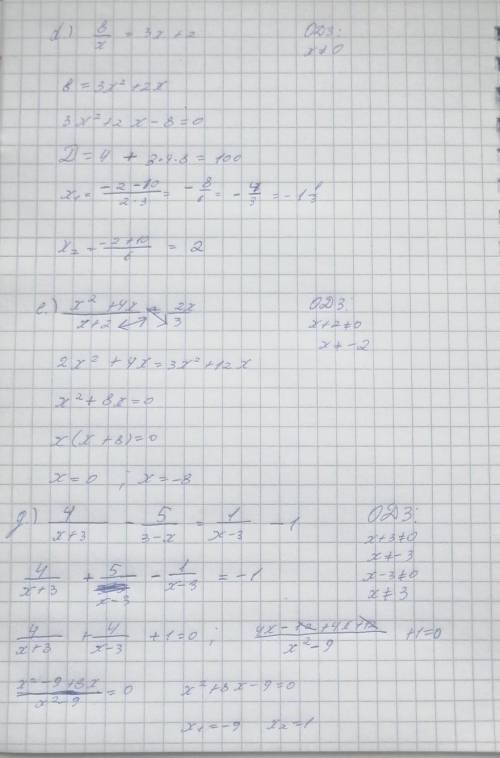 d) 8/x = 3x+2 ОДЗ: x≠0
8 = 3x² + 2x
3x² + 2x − 8 = 0
D = 4 + 3·4·8 = 100
x₁ = (−2−10)/(2·3) = −8/6 = −4/3 = −1 1/3
x₂ = (−2+10)/6 = 2
e.) (x² + 4x)/(x+2) = 2x/3 ОДЗ: x+2≠0 x≠−2
2x² + 4x = 3x² + 12x
x² + 8x = 0
x(x+8) = 0
x=0 ; x=−8
g.) 4/(x+3) − 5/(3−x) = 1/(x−3) − 1 ОДЗ: x+3≠0 x≠−3 x−3≠0 x≠3
4/(x+3) + 5/(x−3) − 1/(x−3) = −1
4/(x+3) + 4/(x−3) + 1=0 ; (4x−12+4x+12)/(x²−9) +1=0
(x²−9+8x)/(x²−9) = 0 x²+8x−9=0
x₁=−9 x₂=1